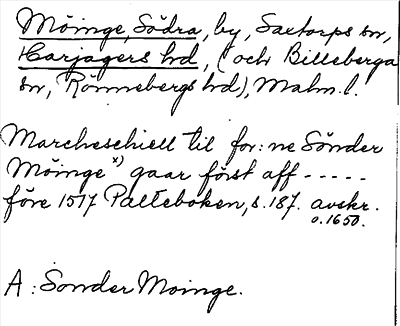 Möinge, Södra, by, Saxtorps sn,
Harjagers hd, (och Billeberga
sn, Rönnebergs hd), Malm. l.
Marcheschiell til for:ne Sönder
Möinge x) gaar först aff -----
före 1517 Palteboken, s. 187. avskr.
o. 1650.
A: Sonder Moinge.